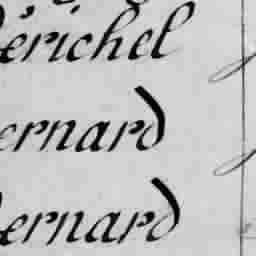 Dérichel
Bernard
Bernard